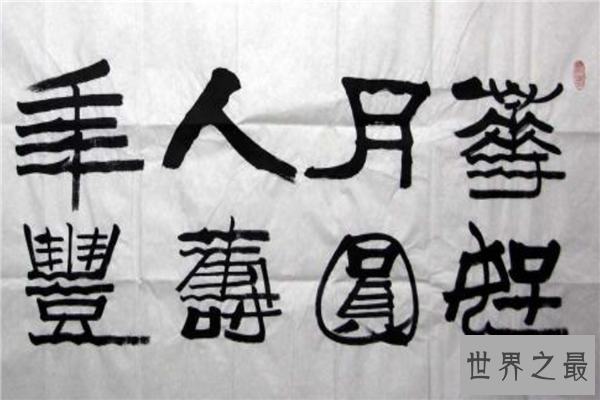 華好
月圓
人壽
年豐
世界之最